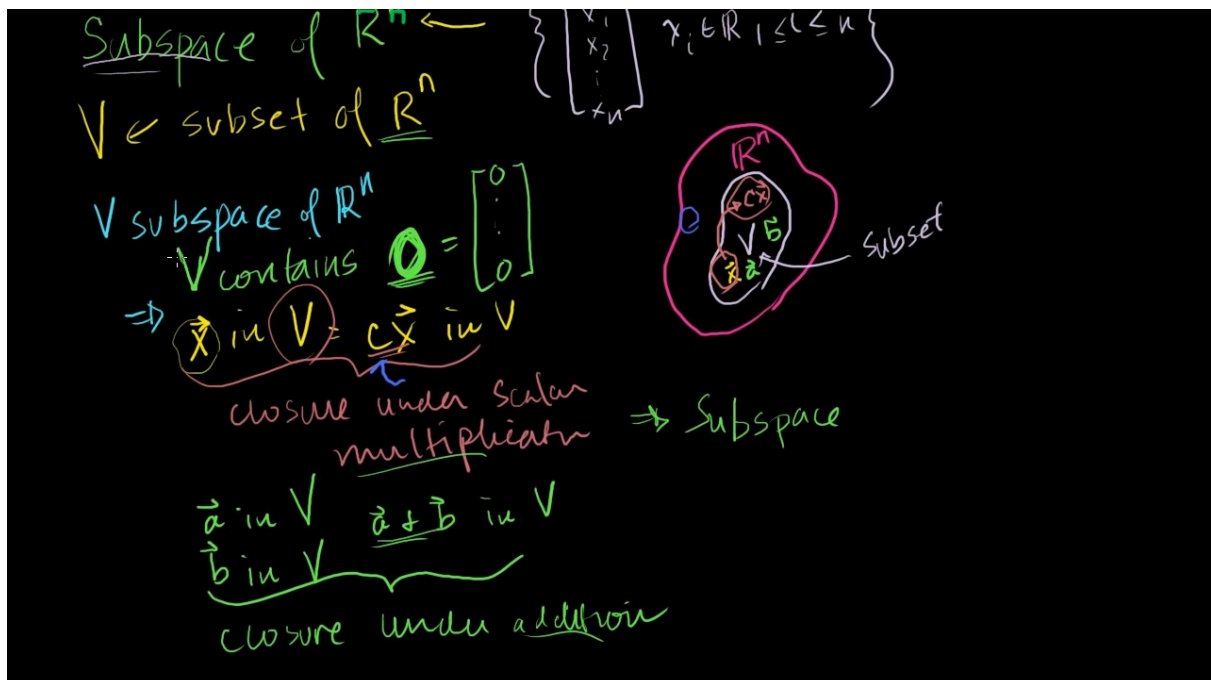 Subspace of Rⁿ ← { [x₁ x₂ ⋮ xₙ] xᵢ ∈ ℝ 1 ≤ i ≤ n }
V ← subset of Rⁿ
V subspace of ℝⁿ
V contains 0 = [0 ⋮ 0]
⇒ x⃗ in V = cx⃗ in V
closure under scalar
multiplicatn
⇒ Subspace
a⃗ in V a⃗ + b⃗ in V
b⃗ in V
closure under addition
ℝⁿ
cx⃗
V b⃗
x⃗ a⃗
Subset